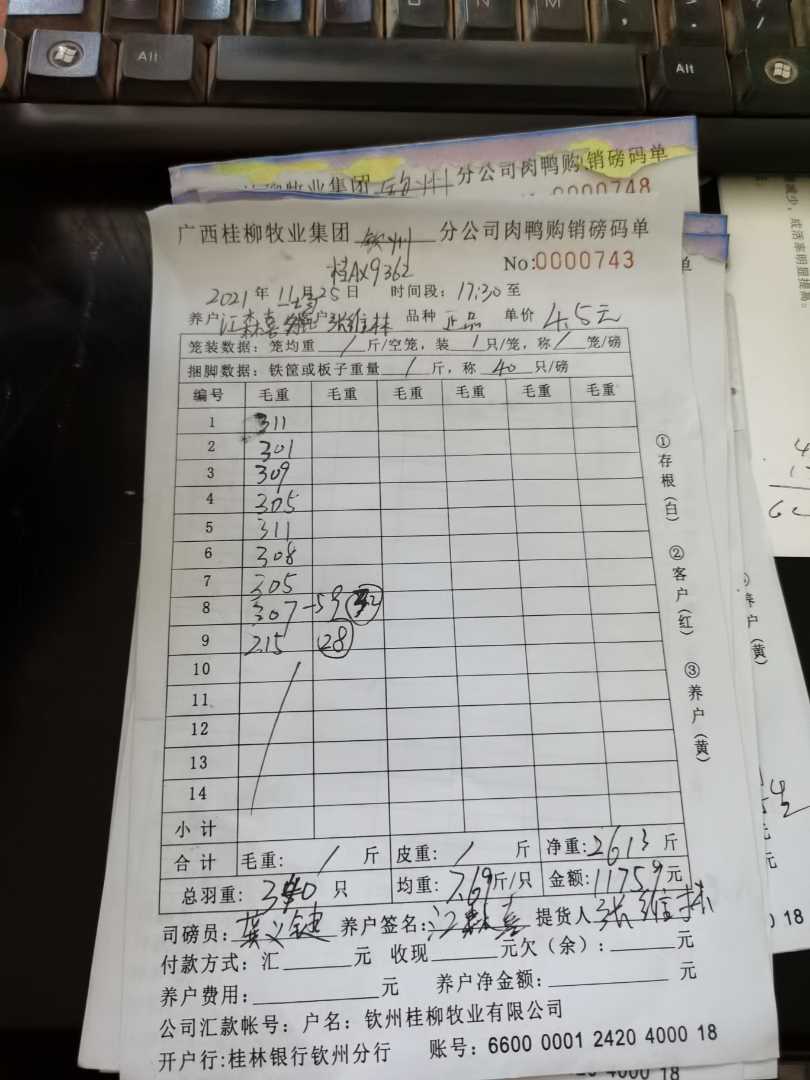 Alt
Alt
分公司肉鸭购销磅码单
0000748
广西桂柳牧业集团 钦州 分公司肉鸭购销磅码单
桂AX9362 No:0000743
2021年11月25日 时间段:17:30至
养户 江森喜 客户 张维林 品种 正品 单价 4.5元
笼装数据:笼均重 / 斤/空笼,装 1 只/笼,称 / 笼/磅
捆脚数据:铁筐或板子重量 / 斤,称 40 只/磅
编号 毛重 毛重 毛重 毛重 毛重 毛重
1 311
2 301
3 309
4 305
5 311
6 308
7 305
8 307 -59
9 215 28
10
11
12
13
14
小计
合计 毛重: / 斤 皮重: / 斤 净重:2613斤
总羽重: 340 只 均重:7.69斤/只 金额:11759元
司磅员: 养户签名:江森喜 提货人 张维林
付款方式:汇 元 收现 元欠(余): 元
养户费用: 元 养户净金额: 元
公司汇款帐号:户名:钦州桂柳牧业有限公司
开户行:桂林银行钦州分行 账号:6600 0001 2420 4000 18
①存根(白) ②客户(红) ③养户(黄)